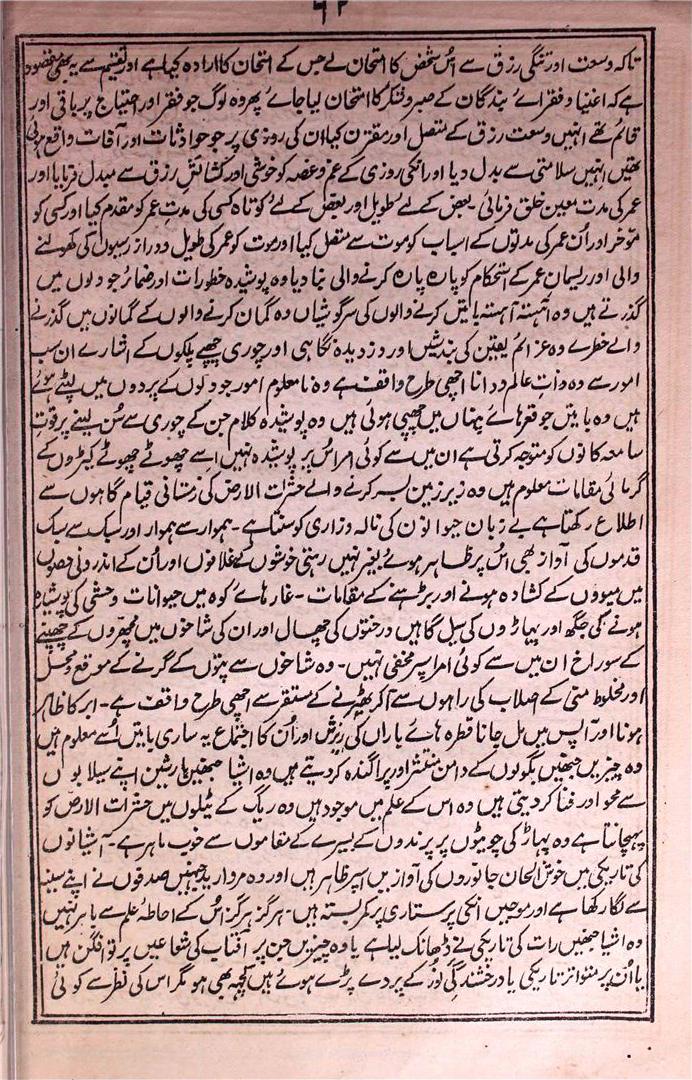 ۶۲
تاکہ وسعت اور تنگی رزق سے اُس شخص کا امتحان لے جس کے امتحان کا ارادہ کیا ہے اور تقسیم سے یہ بھی مقصود
ہے کہ اغنیا و فقراے بندگان کے صبر و شکر کا امتحان لیا جاے پھر وہ لوگ جو فقر اور احتیاج پر باقی اور
قائم تھے انہیں وسعت رزق کے متصل اور مقترن کیا ان کی روزی پر جو حوادثات اور آفات واقع ہوئی
تھیں انہیں سلامتی سے بدل دیا اور انکی روزی کے غم و غصہ کو خوشی اور کشائش رزق سے مبدل فرمایا اور
عمر کی مدت معین خلق فرمائی۔ بعض کے لیے طویل اور بعض کے لیے کوتاہ کسی کی مدتِ عمر کو مقدم کیا اور کسی کو
موخر اور اُن عمر کی مدتوں کے اسباب کو موت سے متصل کیا اور موت کو عمر کی طویل و دراز رسیوں کی کھولنے
والی اور ریسمان عمر کے استحکام کو پارہ پارہ کرنے والی بنا دیا وہ پوشیدہ خطورات اور ضمائر جو دلوں میں
گذرتے ہیں وہ آہستہ آہستہ باتیں کرنے والوں کی سرگوشیاں وہ گمان کرنے والوں کے گمانوں میں گذرنے
والے خطرے وہ عزائم یقین کی بندشیں اور دزدیدہ نگاہی اور چوری چھپے پلکوں کے اشارے ان سب
امور سے وہ ذات عالم و دانا اچھی طرح واقف ہے وہ نامعلوم امور جو دلوں کے پردوں میں لپٹے ہوئے
ہیں وہ باتیں جو قعرہائے پنہاں میں چھپی ہوئی ہیں وہ پوشیدہ کلام جن کے چوری سے سُن لینے پر قوت
سامعہ کانوں کو متوجہ کرتی ہے ان میں سے کوئی امر اس پر پوشیدہ نہیں اسے چھوٹے چھوٹے کیڑوں کے
گرمائی مقامات معلوم ہیں وہ زیر زمین بسر کرنے والے حشرات الارض کی زمستانی قیام گاہوں سے
اطلاع رکھتا ہے بے زبان حیوانوں کی نالہ و زاری کو سنتا ہے۔ ہموار سے ہموار اور سبک سے سبک
قدموں کی آواز بھی اُس پر ظاہر ہوئے بغیر نہیں رہتی خوشوں کے غلافوں اور اُن کے اندرونی حصوں
میں میووں کے کشادہ ہونے اور بڑھنے کے مقامات۔ غارہاے کوہ میں حیوانات وحشی کی پوشیدہ
ہونے کی جگھ اور پہاڑوں کی سیل گاہیں درختوں کی چھال اور ان کی شاخوں میں مچھروں کے چھپنے
کے سوراخ ان میں سے کوئی امر اسپر مخفی نہیں۔ وہ شاخوں سے پتوں کے گرنے کے موقع و محل
اور مخلوط منی کے اصلاب کی راہوں سے آکر ٹھیرنے کے مستقر سے اچھی طرح واقف ہے۔ ابر کا ظاہر
ہونا اور آپس میں مل جانا قطرہ ہاے باراں کی ریزش اور اُن کا اجتماع یہ ساری باتیں اُسے معلوم ہیں
وہ چیزیں جنھیں بگولوں کے دامن منتشر اور پراگندہ کر دیتے ہیں وہ اشیا جنھیں بارشیں اپنے سیلابوں
سے محو اور فنا کر دیتی ہیں وہ اس کے علم میں موجود ہیں وہ ریگ کے ٹیلوں میں حشرات الارض کو
پہچانتا ہے وہ پہاڑ کی چوٹیوں پر پرندوں کے بسیرے کے مقاموں سے خوب ماہر ہے۔ آشیانوں
کی تاریکی میں خوش الحان جانوروں کی آوازیں اسپر ظاہر ہیں اور وہ مروارید جنہیں صدفوں نے اپنے سینہ
سے لگا رکھا ہے اور موجیں انکی پرستاری پر کمربستہ ہیں۔ ہرگز ہرگز اُس کے احاطہ علم سے باہر نہیں
وہ اشیا جنھیں رات کی تاریکی نے ڈھانک لیا ہے یا وہ چیزیں جن پر آفتاب کی شعاعیں پرتو افگن ہیں
یا اُن پر متواتر تاریکی یا درخشندگی نور کے پردے پڑے ہوئے ہیں کچھ بھی ہو مگر اس کی نظر سے کوئی